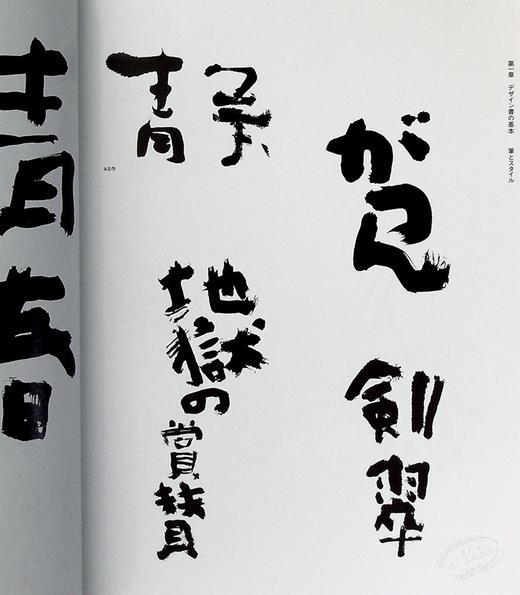 第一章 デザイン書の基本 筆とスタイル
がつん
剣翠
青
AS作
地獄の
賞賛
青